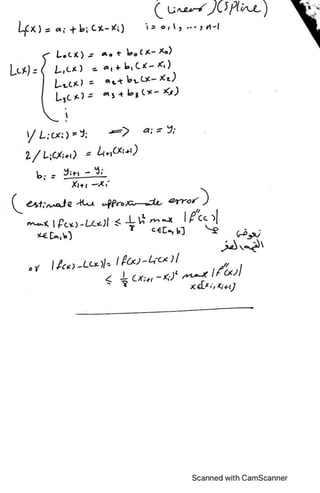 ( Linear )(Spline)
Lᵢ(x) = aᵢ + bᵢ (x - xᵢ)   i = 0, 1, ..., n-1
L(x) = { L₀(x) = a₀ + b₀ (x - x₀)
L₁(x) = a₁ + b₁ (x - x₁)
L₂(x) = a₂ + b₂ (x - x₂)
L₃(x) = a₃ + b₃ (x - x₃)
⋮
1/ Lᵢ(xᵢ) = yᵢ ⇒ aᵢ = yᵢ
2/ Lᵢ(xᵢ₊₁) = Lᵢ₊₁(xᵢ₊₁)
bᵢ = (yᵢ₊₁ - yᵢ) / (xᵢ₊₁ - xᵢ)
( estimate the approximate error )
max |f(x) - L(x)| ≤ 1/8 h² max |f''(c)|
x∈[a,b]   c∈[a,b]
or |f(x) - L(x)| = |f(x) - Lᵢ(x)|
≤ 1/8 (xᵢ₊₁ - xᵢ)² max |f''(x)|
x∈[xᵢ, xᵢ₊₁]
Scanned with CamScanner